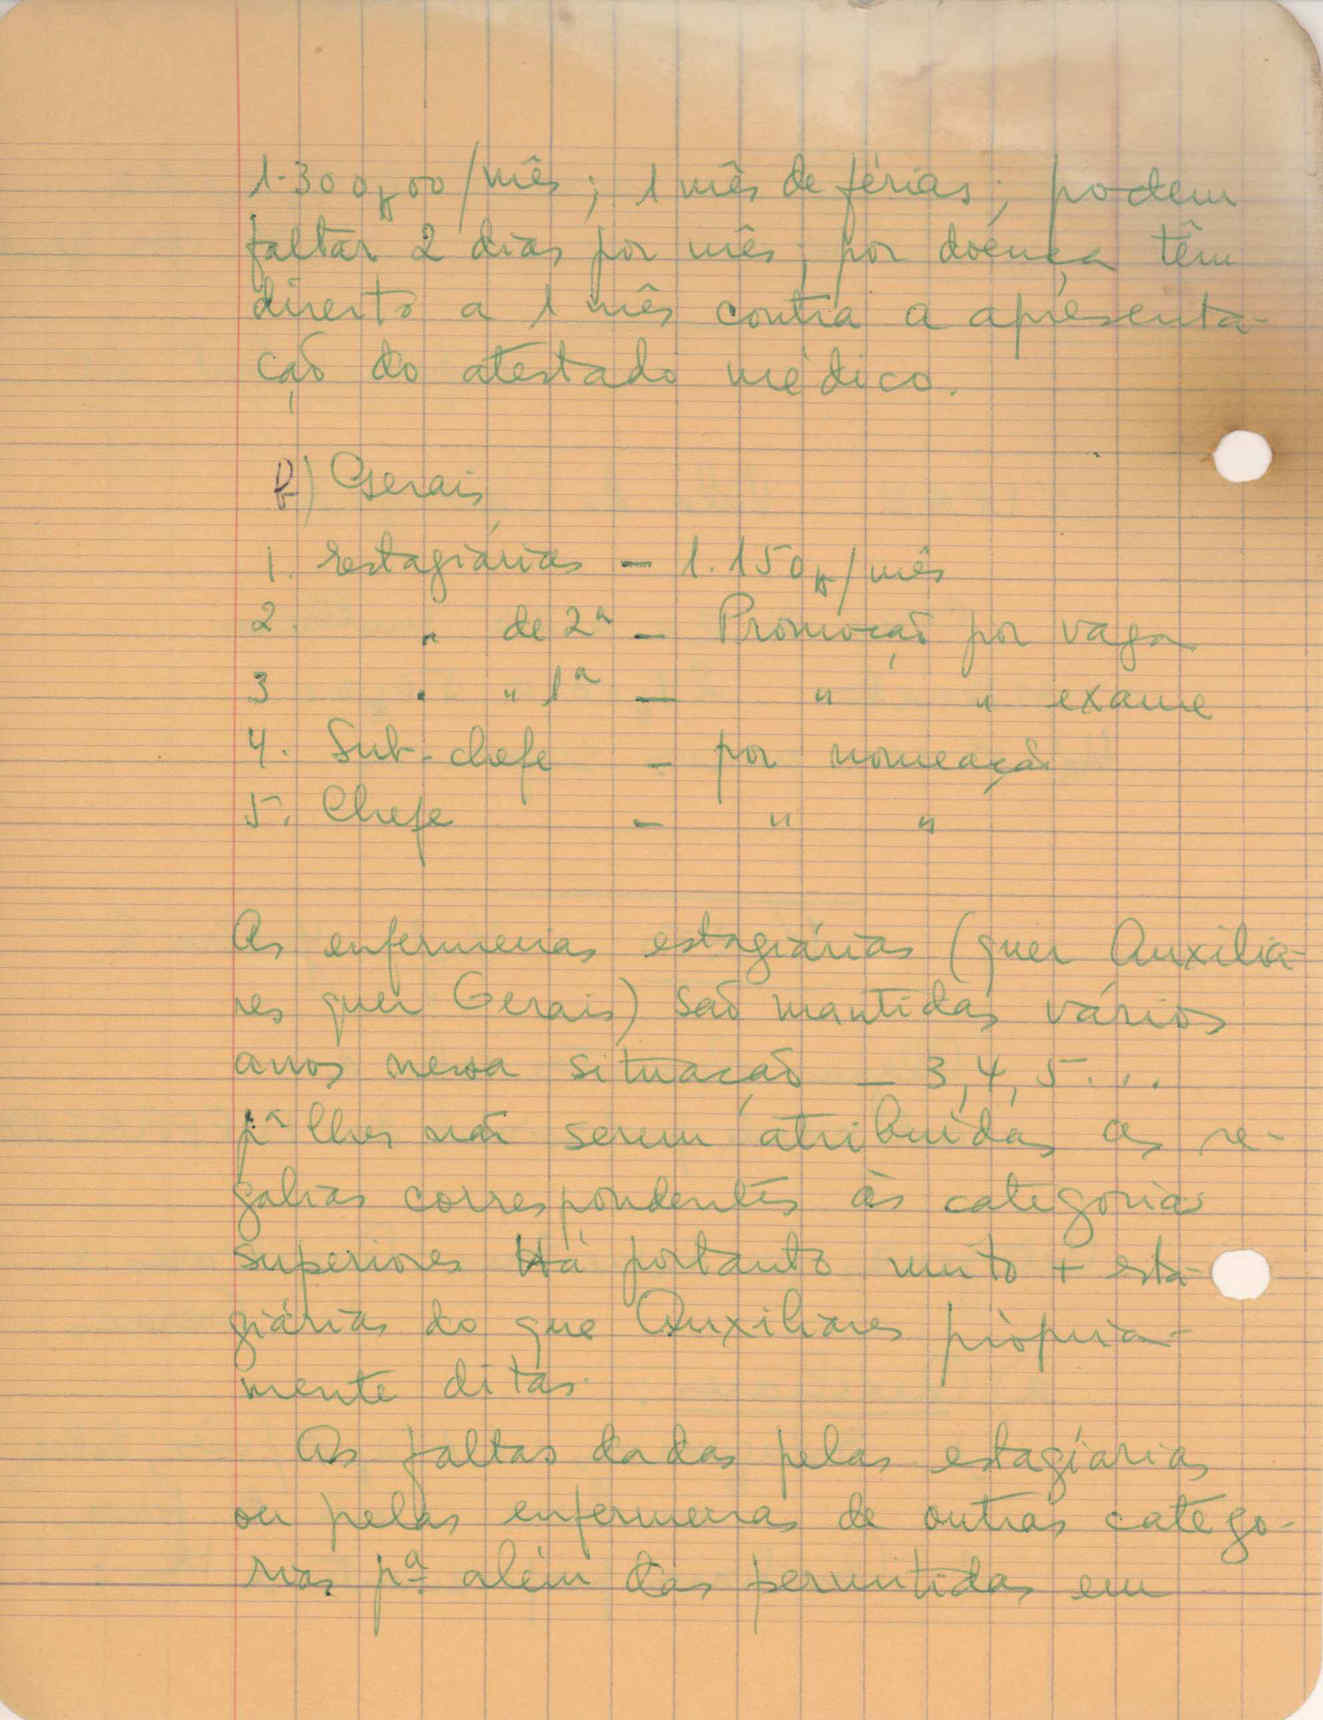 1.300$00/mês; 1 mês de férias; podem
faltar 2 dias por mês; por doença têm
direito a 1 mês contra a apresenta-
ção do atestado médico.
b) Gerais
1. estagiárias — 1.150$/mês
2. " de 2ª — Promoção por vaga
3 " " 1ª — " " exame
4. Sub-chefe — por nomeação
5. Chefe — " "
As enfermeiras estagiárias (quer Auxilia-
res quer Gerais) são mantidas vários
anos nessa situação — 3, 4, 5...
pª lhes não serem atribuídas as re-
galias correspondentes às categorias
superiores Há portanto muito + esta-
giárias do que Auxiliares pròpria-
mente ditas.
As faltas dadas pelas estagiárias
ou pelas enfermeiras de outras catego-
rias pª além das permitidas em